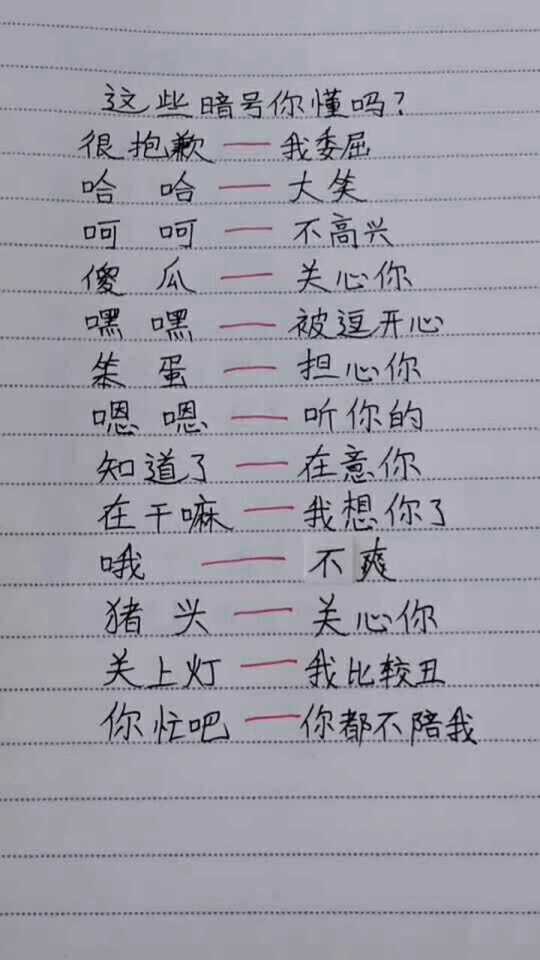 这些暗号你懂吗?
很抱歉——我委屈
哈哈——大笑
呵呵——不高兴
傻瓜——关心你
嘿嘿——被逗开心
笨蛋——担心你
嗯嗯——听你的
知道了——在意你
在干嘛——我想你了
哦——不爽
猪头——关心你
关上灯——我比较丑
你忙吧——你都不陪我